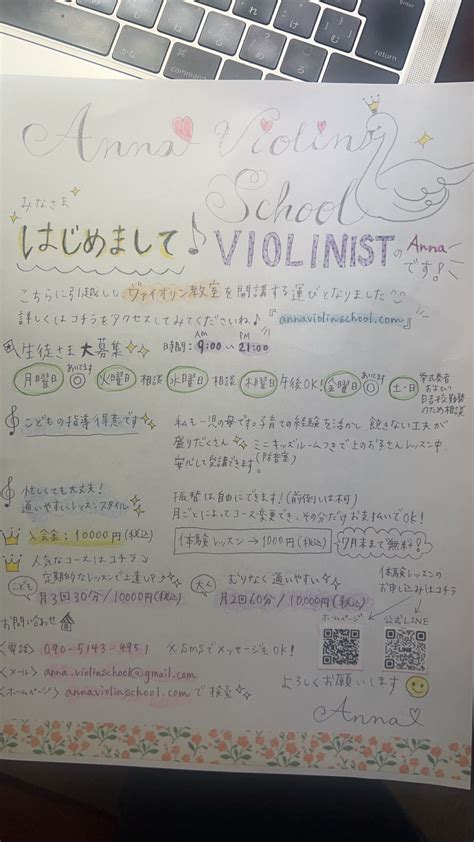 Anna Violin
School
みなさま
はじめまして♪ VIOLINISTのAnnaです!
こちらに引越しし ヴァイオリン教室を開講する運びとなりました^^
詳しくはコチラをアクセスしてみてくださいね♪『annaviolinschool.com』
生徒さま大募集 時間: AM 9:00 い PM 21:00
月曜日 あいてます◎ 火曜日 相談 水曜日 相談 木曜日 午後OK! 金曜日 あいてます◎ 土・日 挙式奏者および 日 校勤務のため相談
こどもの指導得意です
私も一児の母です。子育ての経験を活かし 飽きない工夫が
盛りだくさん ミニキッズルームつきで上のお子さんレッスン中、
安心して受講できます。(防音室)
忙しくても大丈夫!
通いやすいレッスンスタイル
振替は自由にできます!(前倒しは不可)
月ごとによってコース変更でき、その分だけお支払いでOK!
入会金: 10000円(税込)
体験レッスン→1000円(税込)
7月末まで無料!
人気なコースはコチラ
体験レッスンのお申し込みはコチラ
こども 定期的なレッスンで上達UP♪
月3回30分/10,000円(税込)
大人 むりなく通いやすい
月2回60分/10,000円(税込)
ホームページ
公式LINE
LINE
お問い合わせ
<電話> 090-5143-4951 ※SMSでメッセージもOK!
<メール> anna.violinschool@gmail.com
<ホームページ> annaviolinschool.comで検索
よろしくお願いします
Anna
command
return
かな